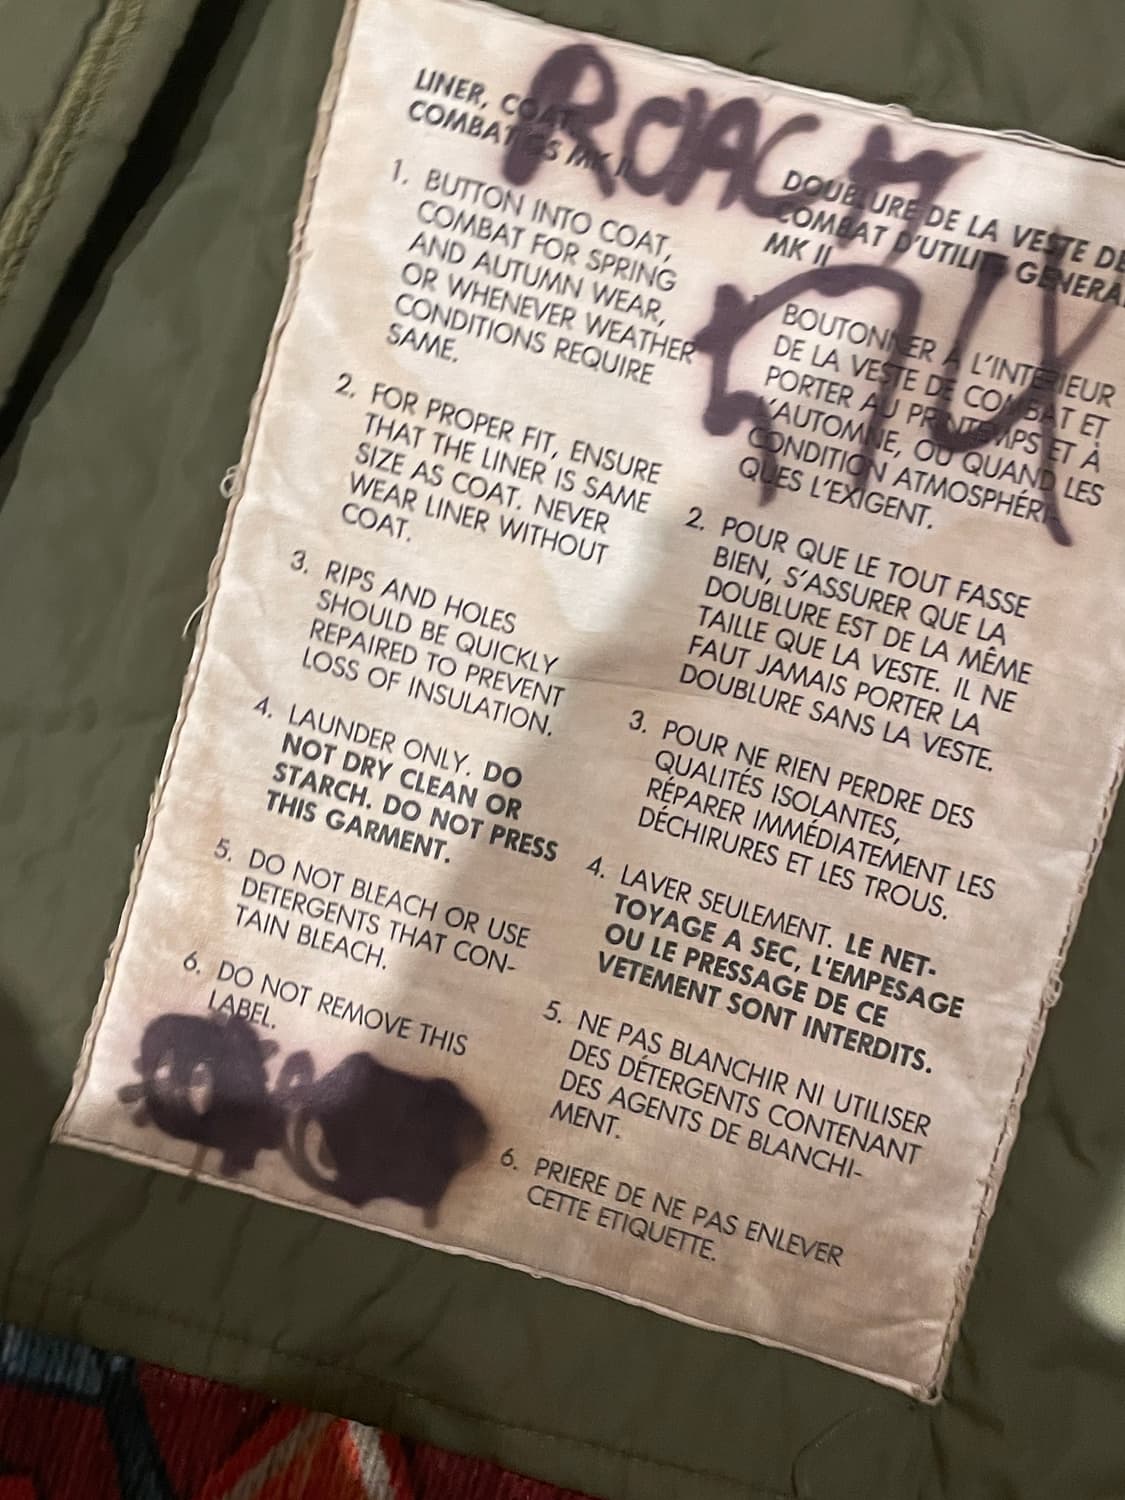 ROACH
LINER, COAT,
COMBAT GS MK II
1. BUTTON INTO COAT,
COMBAT FOR SPRING
AND AUTUMN WEAR,
OR WHENEVER WEATHER
CONDITIONS REQUIRE
SAME.
2. FOR PROPER FIT, ENSURE
THAT THE LINER IS SAME
SIZE AS COAT. NEVER
WEAR LINER WITHOUT
COAT.
3. RIPS AND HOLES
SHOULD BE QUICKLY
REPAIRED TO PREVENT
LOSS OF INSULATION.
4. LAUNDER ONLY. DO
NOT DRY CLEAN OR
STARCH. DO NOT PRESS
THIS GARMENT.
5. DO NOT BLEACH OR USE
DETERGENTS THAT CON-
TAIN BLEACH.
6. DO NOT REMOVE THIS
LABEL.
DOUBLURE DE LA VESTE DE
COMBAT D'UTILITE GENERA
MK II
BOUTONNER A L'INTERIEUR
DE LA VESTE DE COMBAT ET
PORTER AU PRINTEMPS ET À
L'AUTOMNE, OU QUAND LES
CONDITION ATMOSPHÉRI-
QUES L'EXIGENT.
2. POUR QUE LE TOUT FASSE
BIEN, S'ASSURER QUE LA
DOUBLURE EST DE LA MÊME
TAILLE QUE LA VESTE. IL NE
FAUT JAMAIS PORTER LA
DOUBLURE SANS LA VESTE.
3. POUR NE RIEN PERDRE DES
QUALITÉS ISOLANTES,
RÉPARER IMMÉDIATEMENT LES
DÉCHIRURES ET LES TROUS.
4. LAVER SEULEMENT. LE NET-
TOYAGE A SEC, L'EMPESAGE
OU LE PRESSAGE DE CE
VETEMENT SONT INTERDITS.
5. NE PAS BLANCHIR NI UTILISER
DES DÉTERGENTS CONTENANT
DES AGENTS DE BLANCHI-
MENT.
6. PRIERE DE NE PAS ENLEVER
CETTE ETIQUETTE.